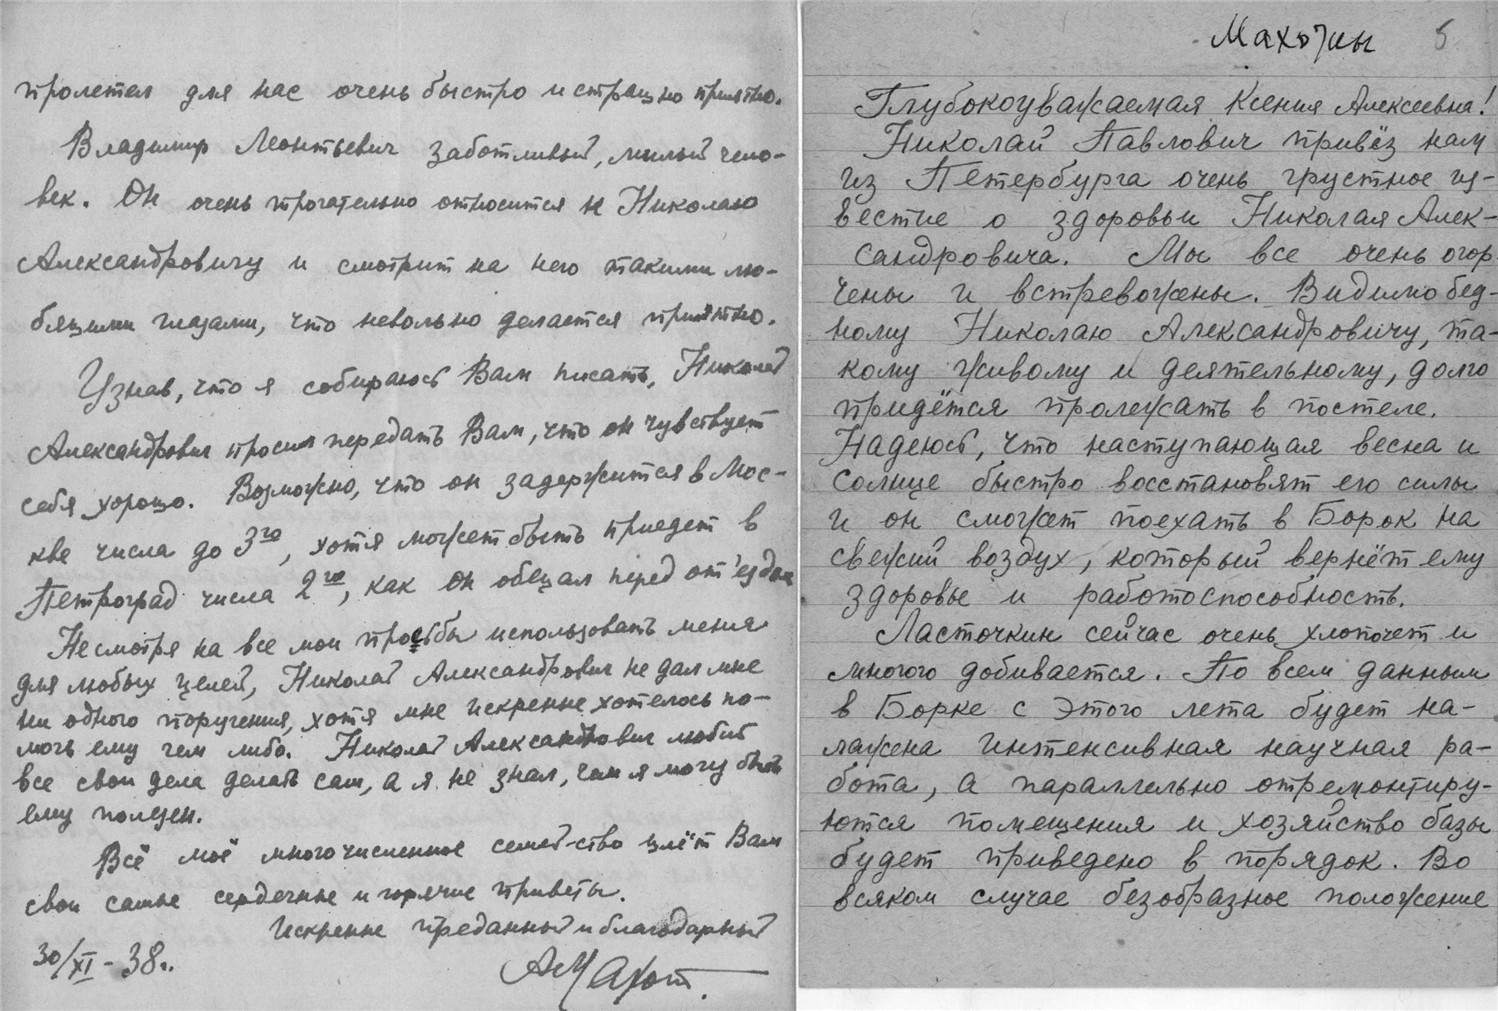 пролетел для нас очень быстро и страшно приятно.
Владимир Леонтьевич заботливый, милый чело-
век. Он очень трогательно относится к Николаю
Александровичу и смотрит на него такими лю-
бящими глазами, что невольно делается приятно.
Узнав, что я собираюсь Вам писать, Николай
Александрович просил передать Вам, что он чувствует
себя хорошо. Возможно, что он задержится в Мос-
кве числа до 3го, хотя может быть приедет в
Петроград числа 2го, как он обещал перед от'ездом
Несмотря на все мои просьбы использовать меня
для любых целей, Николай Александрович не дал мне
ни одного поручения, хотя мне искренне хотелось по-
мочь ему чем либо. Николай Александрович любит
все свои дела делать сам, а я не знал, чем я могу быть
ему полезен.
Всё моё многочисленное семейство шлёт Вам
свои самые сердечные и горячие приветы.
Искренне преданный и благодарный
30/XI - 38г.
АМахот.
Махо/ины 5
Глубокоуважаемая Ксения Алексеевна!
Николай Павлович привёз нам
из Петербурга очень грустное из-
вестие о здоровьи Николая Алек-
сандровича. Мы все очень огор
чены и встревожены. Видимо бед-
ному Николаю Александровичу, та-
кому живому и деятельному, долго
придётся пролежать в постеле.
Надеюсь, что наступающая весна и
солнце быстро восстановят его силы
и он сможет поехать в Борок на
свежий воздух, который вернёт ему
здоровье и работоспособность.
Ласточкин сейчас очень хлопочет и
многого добивается. По всем данным
в Борке с этого лета будет на-
лажена интенсивная научная ра-
бота, а параллельно отремонтиру-
ются помещения и хозяйство базы
будет приведено в порядок. Во
всяком случае безобразное положение